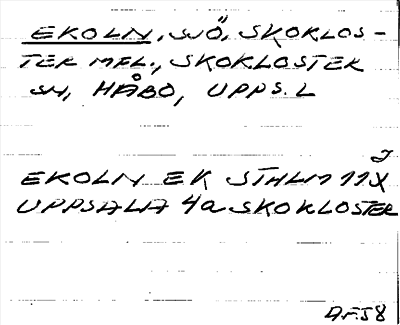 EKOLN, SJÖ, SKOKLOS-
TER MFL., SKOKLOSTER
SN, HÅBO, UPPS.L
J
EKOLN EK STHLM 11X
UPPSALA 4a SKOKLOSTER
AF58